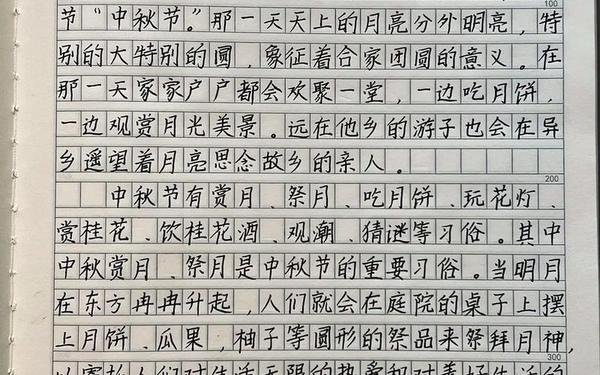 100
节“中秋节”。那一天天上的月亮分外明亮，特
别的大特别的圆，象征着合家团圆的意义。在
那一天家家户户都会欢聚一堂，一边吃月饼，
一边观赏月光美景。远在他乡的游子也会在异
乡遥望着月亮思念故乡的亲人。
200
中秋节有赏月、祭月、吃月饼、玩花灯、
赏桂花、饮桂花酒、观潮、猜谜等习俗。其中
中秋赏月、祭月是中秋节的重要习俗。当明月
在东方冉冉升起，人们就会在庭院的桌子上摆
上月饼、瓜果，柚子等圆形的祭品来祭拜月神，
300
以寄托人们对生活无限的热爱和对美好生活的